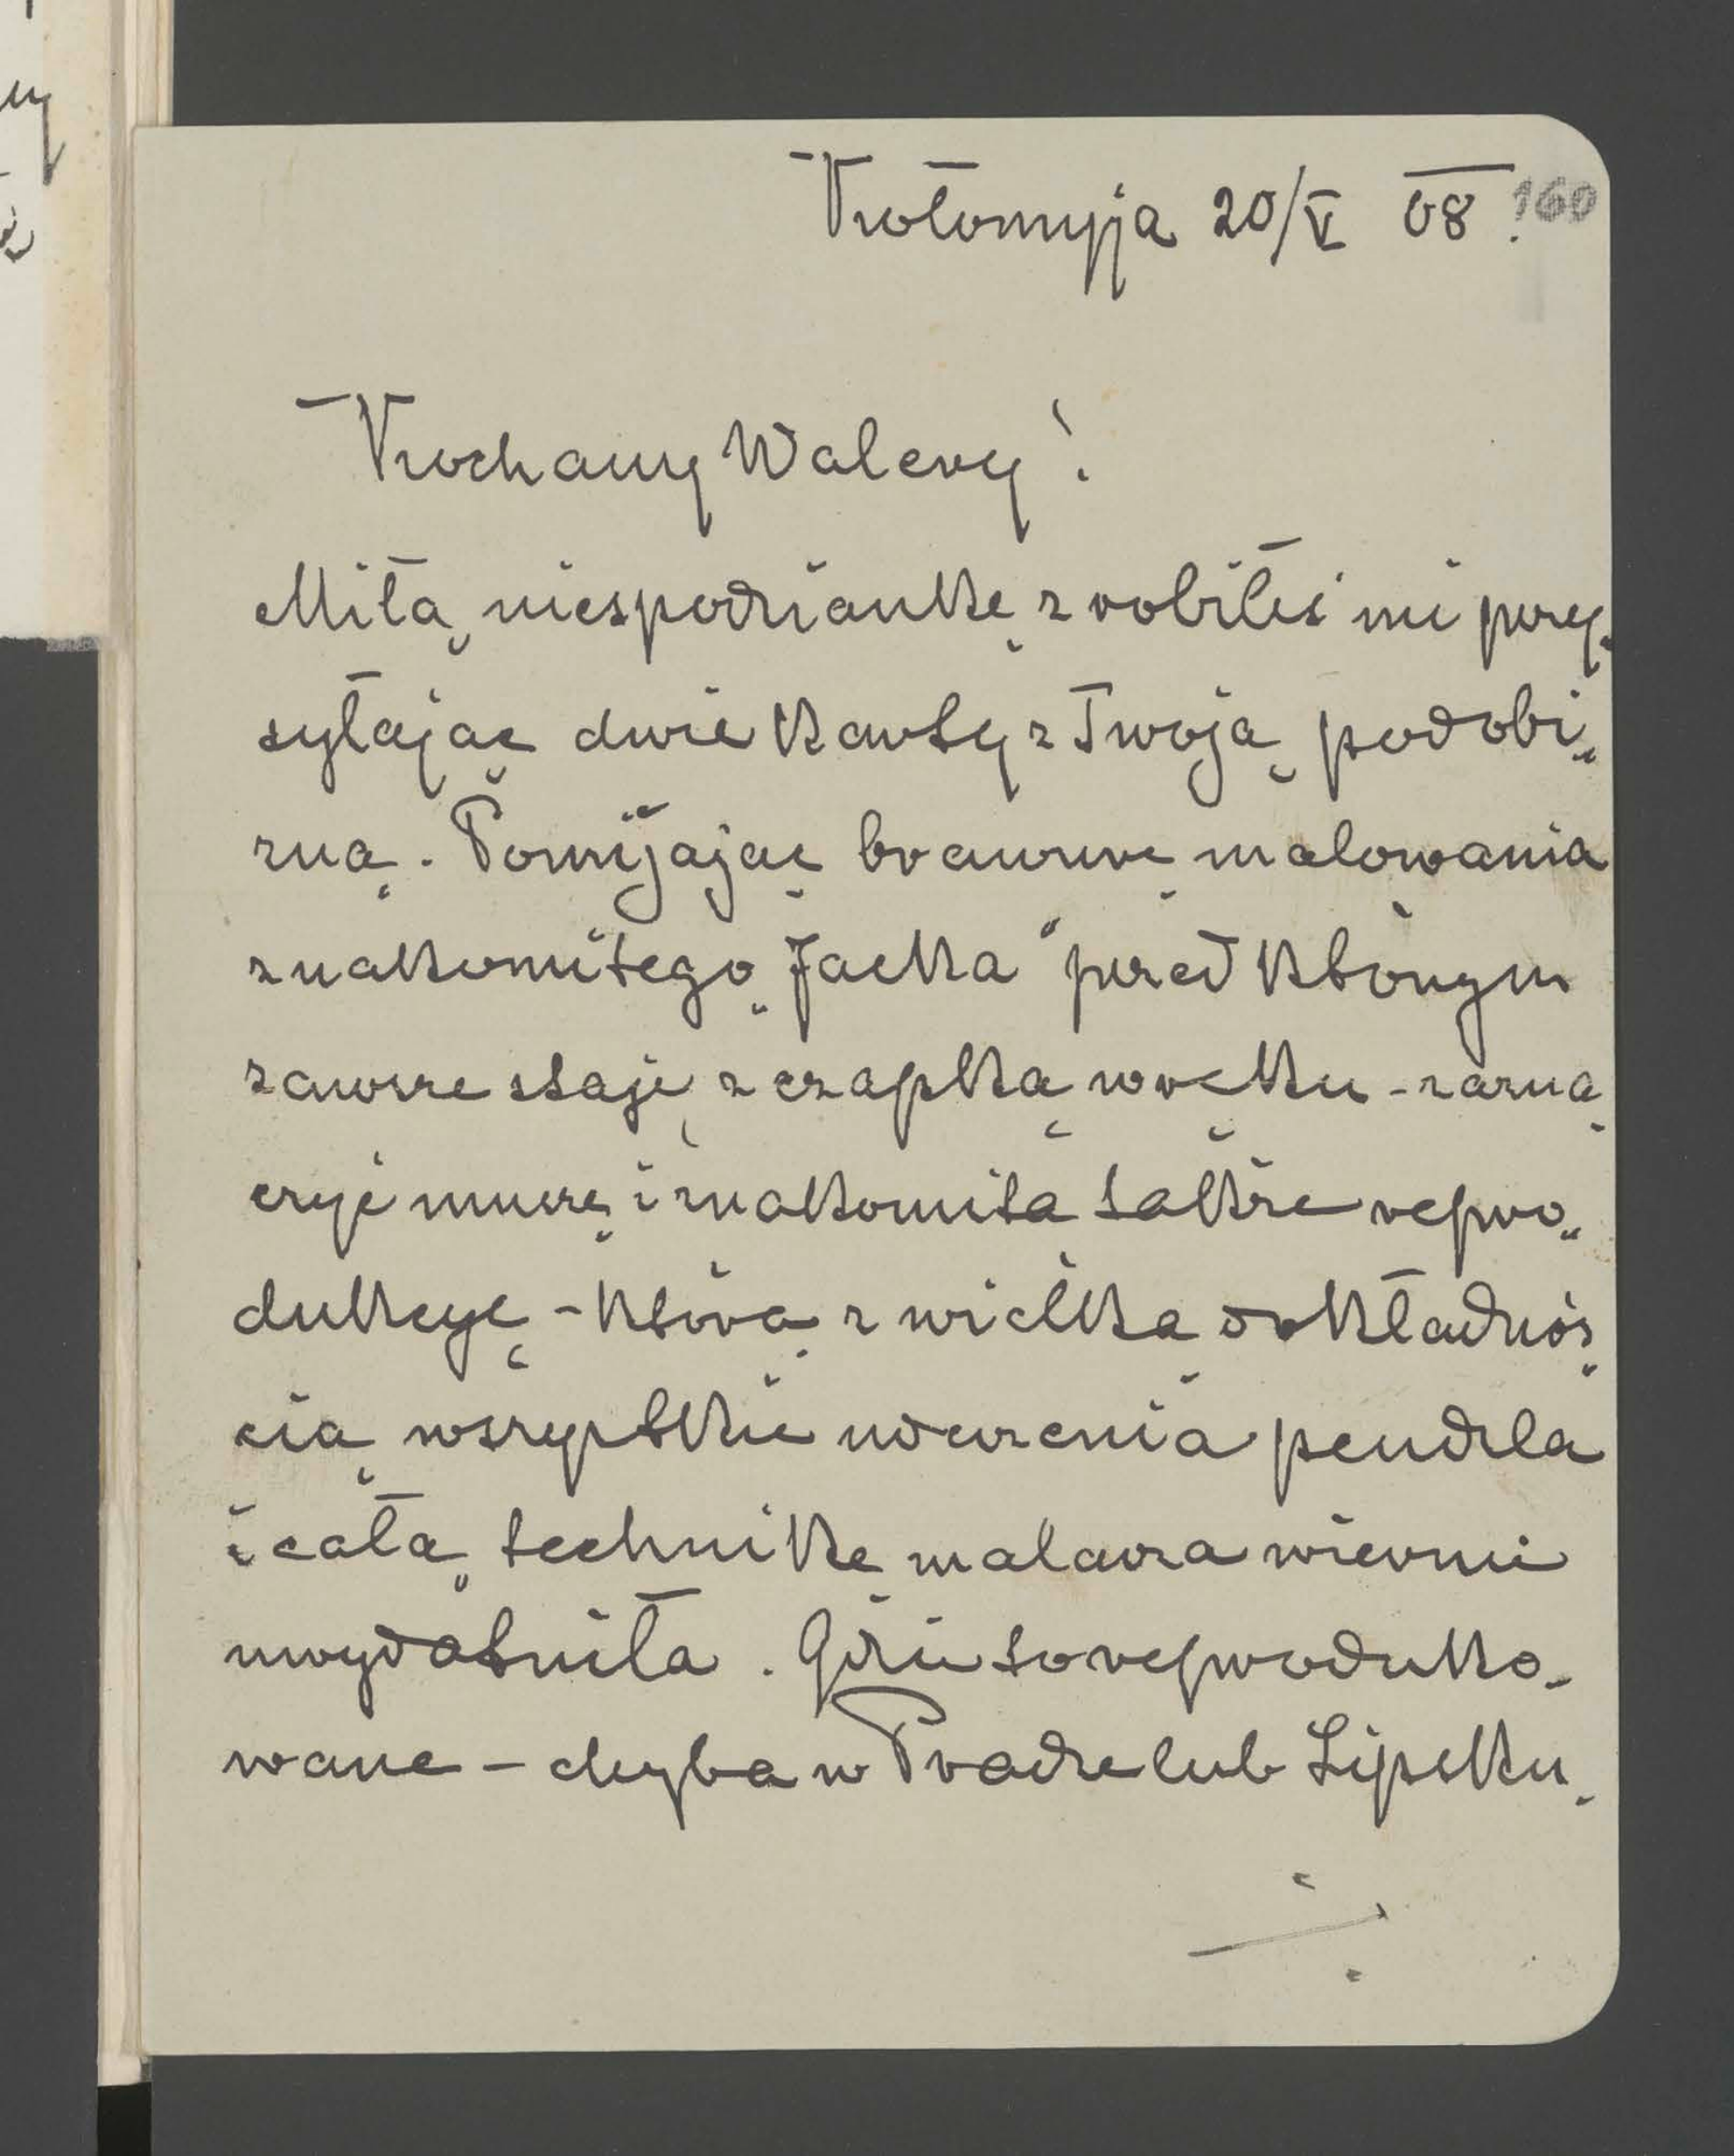 Kołomyja 20/V 08. 160
Kochany Walery!
Miłą niespodziankę zrobiłeś mi przy-
syłając dwie karty z Twoją podobi„
zną. Pomijając brawurę malowania
znakomitego „Jacka" przed którym
zawsze staję z czapką w ręku - zazna
czyć muszę i znakomitą także repro„
dukcyę - którą z wielką dokładnoś„
cią wszystkie uderzenia pendzla
i całą technikę malarza wiernie
uwydatniła. Gdzie to reproduko-
wane - chyba w Pradze lub Lipsku.